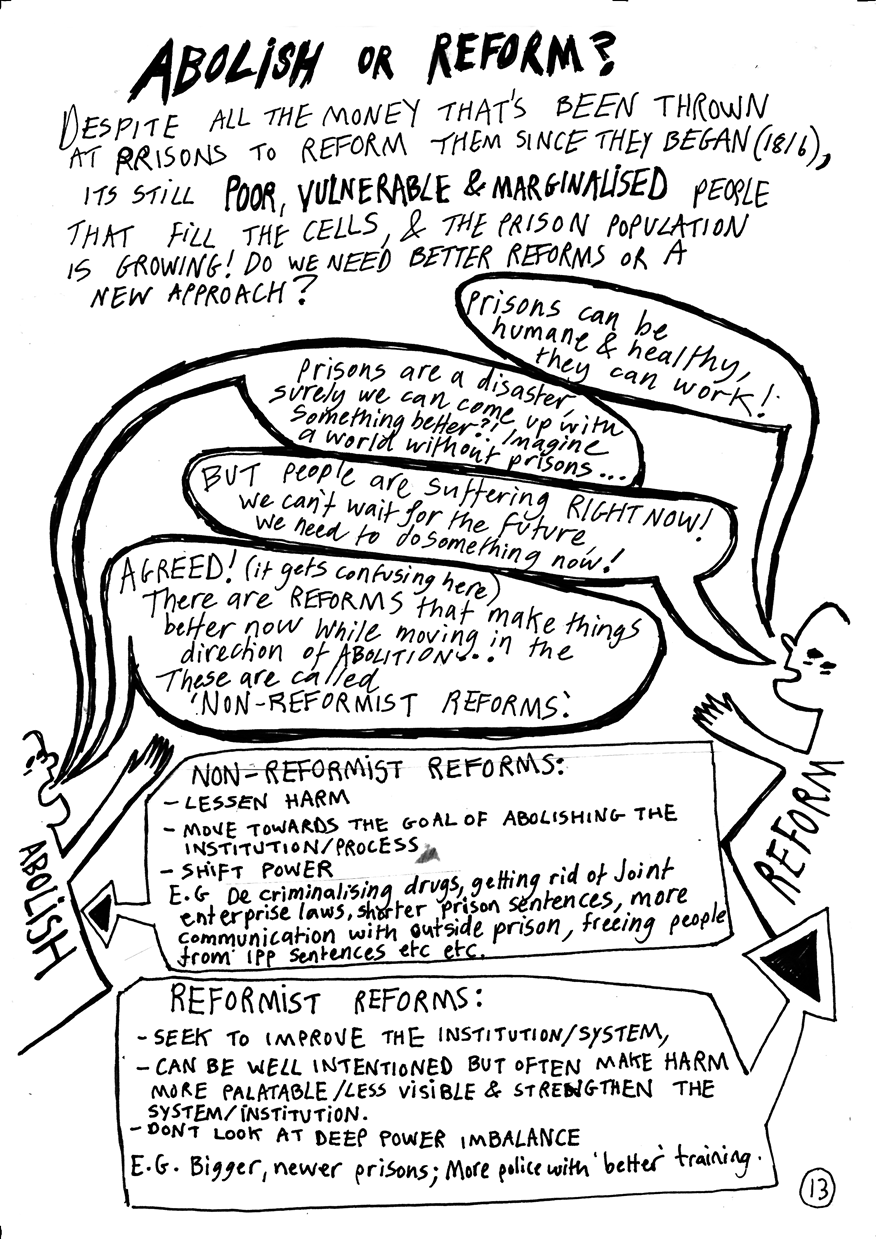 ABOLISH OR REFORM?
DESPITE ALL THE MONEY THAT'S BEEN THROWN
AT PRISONS TO REFORM THEM SINCE THEY BEGAN (1816),
ITS STILL POOR, VULNERABLE & MARGINALISED PEOPLE
THAT FILL THE CELLS, & THE PRISON POPULATION
IS GROWING! DO WE NEED BETTER REFORMS OR A
NEW APPROACH?
Prisons can be
humane & healthy,
they can work!
Prisons are a disaster,
surely we can come up with
something better?! Imagine
a world without prisons...
BUT people are suffering RIGHT NOW!
we can't wait for the future,
we need to do something now!
AGREED! (it gets confusing here)
There are REFORMS that make things
better now while moving in the
direction of ABOLITION...
These are called
'NON-REFORMIST REFORMS'.
ABOLISH
REFORM
NON-REFORMIST REFORMS:
- LESSEN HARM
- MOVE TOWARDS THE GOAL OF ABOLISHING THE
INSTITUTION/PROCESS
- SHIFT POWER
E.G Decriminalising drugs, getting rid of Joint
enterprise laws, shorter prison sentences, more
communication with outside prison, freeing people
from IPP sentences etc etc.
REFORMIST REFORMS:
- SEEK TO IMPROVE THE INSTITUTION/SYSTEM,
- CAN BE WELL INTENTIONED BUT OFTEN MAKE HARM
MORE PALATABLE/LESS VISIBLE & STRENGTHEN THE
SYSTEM/INSTITUTION.
- DONT LOOK AT DEEP POWER IMBALANCE
E.G. Bigger, newer prisons; More police with 'better' training.
13